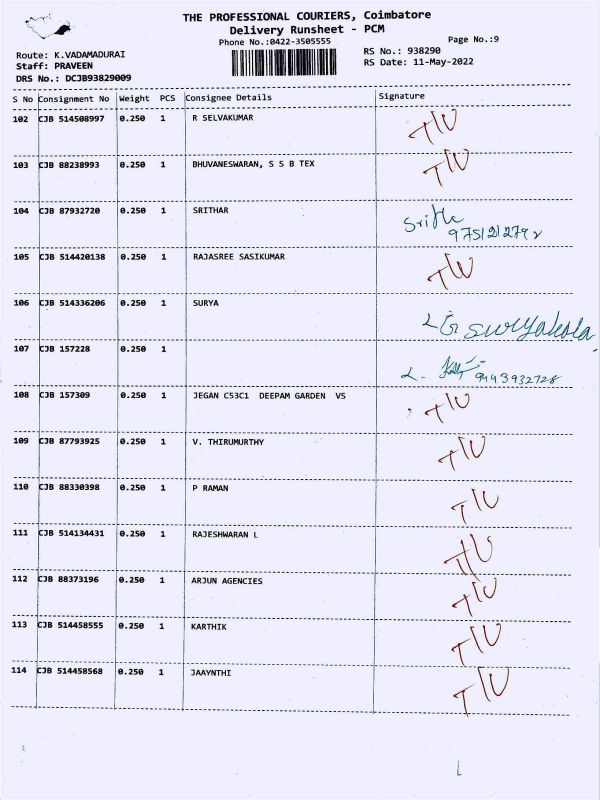 THE PROFESSIONAL COURIERS, Coimbatore
Delivery Runsheet - PCM
Phone No.:0422-3505555
Page No.:9
Route: K.VADAMADURAI
RS No.: 938290
Staff: PRAVEEN
RS Date: 11-May-2022
DRS No.: DCJB93829009
S No Consignment No Weight PCS Consignee Details Signature
102 CJB 514508997 0.250 1 R SELVAKUMAR T/U
103 CJB 88238993 0.250 1 BHUVANESWARAN, S S B TEX T/U
104 CJB 87932720 0.250 1 SRITHAR
105 CJB 514420138 0.250 1 RAJASREE SASIKUMAR T/U
106 CJB 514336206 0.250 1 SURYA
107 CJB 157228 0.250 1 9443932728
108 CJB 157309 0.250 1 JEGAN C53C1 DEEPAM GARDEN VS T/U
109 CJB 87793925 0.250 1 V. THIRUMURTHY T/U
110 CJB 88330398 0.250 1 P RAMAN T/U
111 CJB 514134431 0.250 1 RAJESHWARAN L T/U
112 CJB 88373196 0.250 1 ARJUN AGENCIES T/U
113 CJB 514458555 0.250 1 KARTHIK T/U
114 CJB 514458568 0.250 1 JAAYNTHI T/U